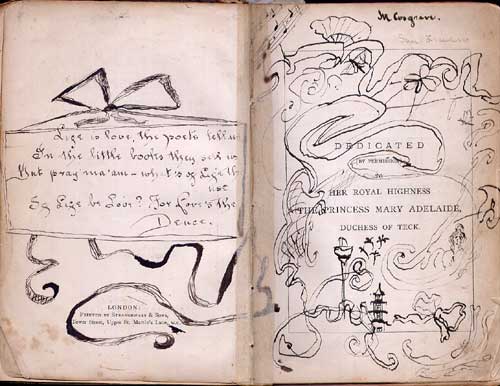 Life is love, the poets tell us
In the little books they sell us
But pray ma'am - what's of Life the
use
If Life be Love? For Love's the
Deuce.
LONDON:
PRINTED BY STRANGEWAYS & SONS,
Tower Street, Upper St. Martin's Lane, W.C.
M Cosgrave.
DEDICATED
(BY PERMISSION)
TO
HER ROYAL HIGHNESS
THE PRINCESS MARY ADELAIDE,
DUCHESS OF TECK.